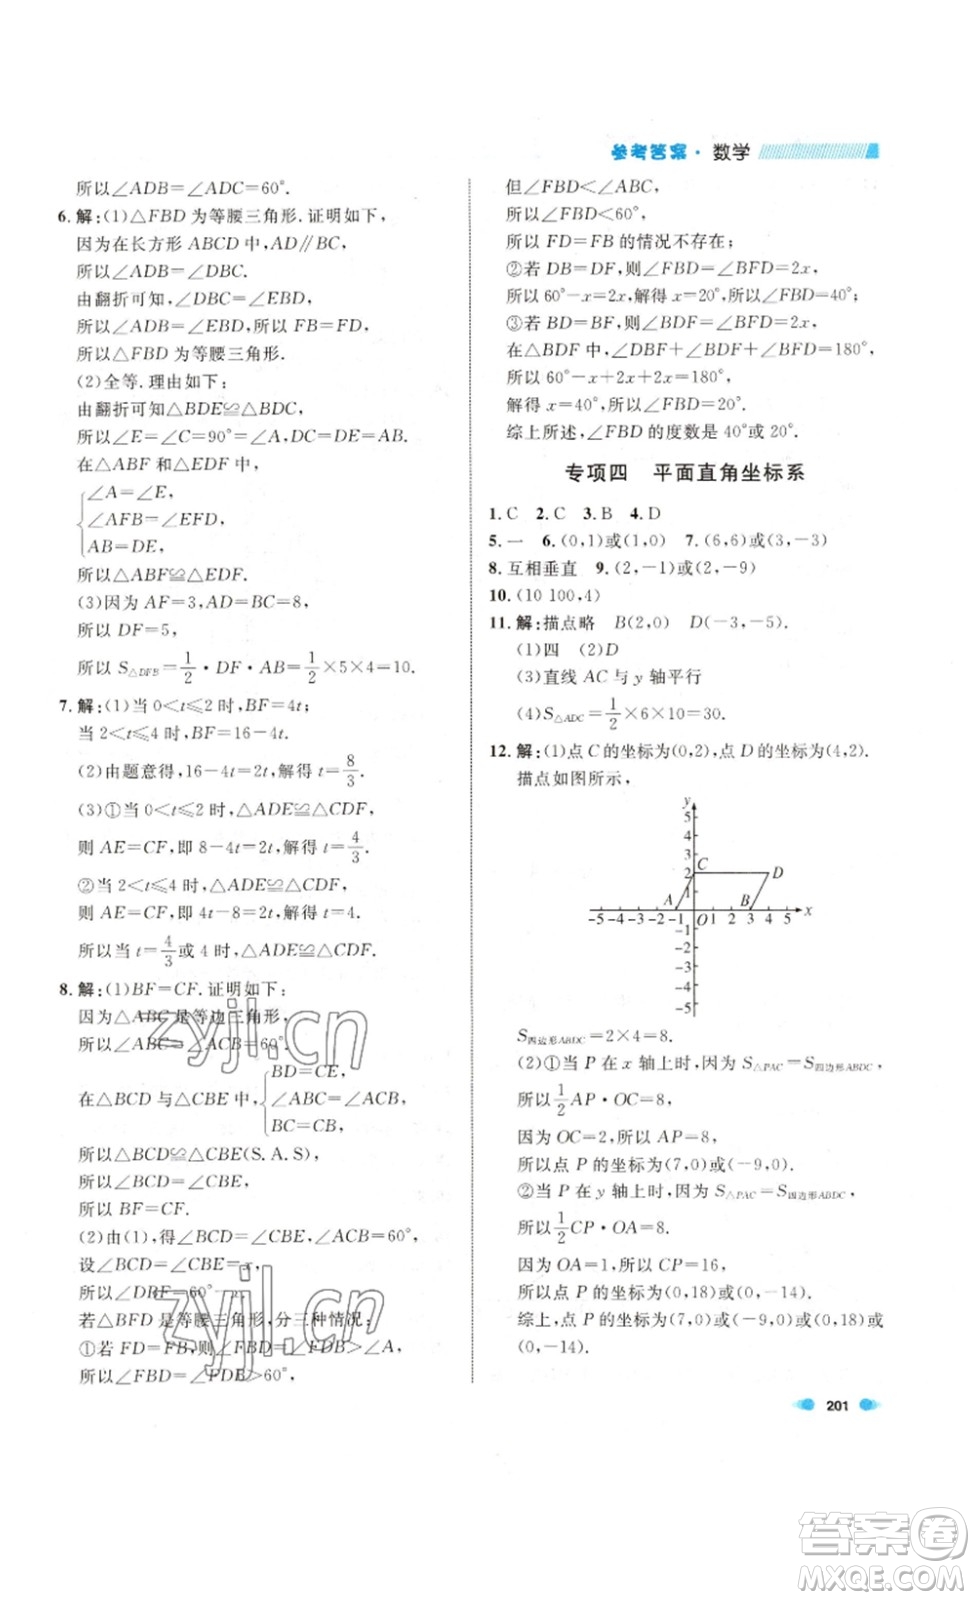 参考答案·数学
所以∠ADB=∠ADC=60°.
6. 解:(1)△FBD 为等腰三角形. 证明如下,
因为在长方形 ABCD 中, AD∥BC,
所以∠ADB=∠DBC.
由翻折可知,∠DBC=∠EBD,
所以∠ADB=∠EBD,所以 FB=FD,
所以△FBD 为等腰三角形.
(2)全等. 理由如下:
由翻折可知△BDE≌△BDC,
所以∠E=∠C=90°=∠A,DC=DE=AB.
在△ABF 和△EDF 中,
∠A=∠E,
∠AFB=∠EFD,
AB=DE,
所以△ABF≌△EDF.
(3)因为 AF=3,AD=BC=8,
所以 DF=5,
所以 S△DFB=1/2·DF·AB=1/2×5×4=10.
7. 解:(1)当 0<t≤2 时,BF=4t;
当 2<t≤4 时,BF=16-4t.
(2)由题意得,16-4t=2t,解得 t=8/3.
(3)①当 0<t≤2 时,△ADE≌△CDF,
则 AE=CF,即 8-4t=2t,解得 t=4/3.
②当 2<t≤4 时,△ADE≌△CDF,
则 AE=CF,即 4t-8=2t,解得 t=4.
所以当 t=4/3或 4 时,△ADE≌△CDF.
8. 解:(1)BF=CF. 证明如下:
因为△ABC 是等边三角形,
所以∠ABC=∠ACB=60°.
在△BCD 与△CBE 中,
BD=CE,
∠ABC=∠ACB,
BC=CB,
所以△BCD≌△CBE(S.A.S)
所以∠BCD=∠CBE,
所以 BF=CF.
(2)由(1),得∠BCD=∠CBE,∠ACB=60°,
设∠BCD=∠CBE=x,
所以∠DBF=60°-x,
若△BFD 是等腰三角形,分三种情况:
①若 FD=FB,则∠FBD=∠FDB,
所以∠FBD=∠FDE>60°,
但∠FBD<∠ABC,
所以∠FBD<60°,
所以 FD=FB 的情况不存在;
②若 DB=DF,则∠FBD=∠BFD=2x,
所以 60°-x=2x,解得 x=20°,所以∠FBD=40°;
③若 BD=BF,则∠BDF=∠BFD=2x,
在△BDF 中,∠FBD+∠BDF+∠BFD=180°,
所以 60°-x+2x+2x=180°,
解得 x=40°,所以∠FBD=20°.
综上所述,∠FBD 的度数是 40°或 20°.
专项四 平面直角坐标系
1. C 2. C 3. B 4. D
5. 一 6. (0,1)或(1,0) 7. (6,6)或(3,-3)
8. 互相垂直 9. (2,-1)或(2,-9)
10. (10 100,4)
11. 解:描点略 B(2,0) D(-3,-5).
(1)四 (2)D
(3)直线 AC 与 y 轴平行
(4)S△ADC=1/2×6×10=30.
12. 解:(1)点 C 的坐标为(0,2),点 D 的坐标为(4,2).
描点如图所示,
y
5
4
3
2 C D
1
A B
-5 -4 -3 -2 -1 O 1 2 3 4 5 x
-1
-2
-3
-4
-5
S四边形ABDC=2×4=8.
(2)①当 P 在 x 轴上时,因为 S△PAC=S四边形ABDC,
所以1/2AP·OC=8,
因为 OC=2,所以 AP=8,
所以点 P 的坐标为(7,0)或(-9,0).
②当 P 在 y 轴上时,因为 S△PAC=S四边形ABDC,
所以1/2CP·OA=8,
因为 OA=1,所以 CP=16,
所以点 P 的坐标为(0,18)或(0,-14).
综上,点 P 的坐标为(7,0)或(-9,0)或(0,18)或
(0,-14).
201
zyjl.cn
zyjl.cn
答案卷
MXQE.COM